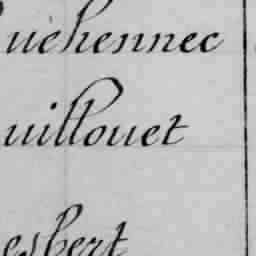 uéhennec
uillouet
esbert